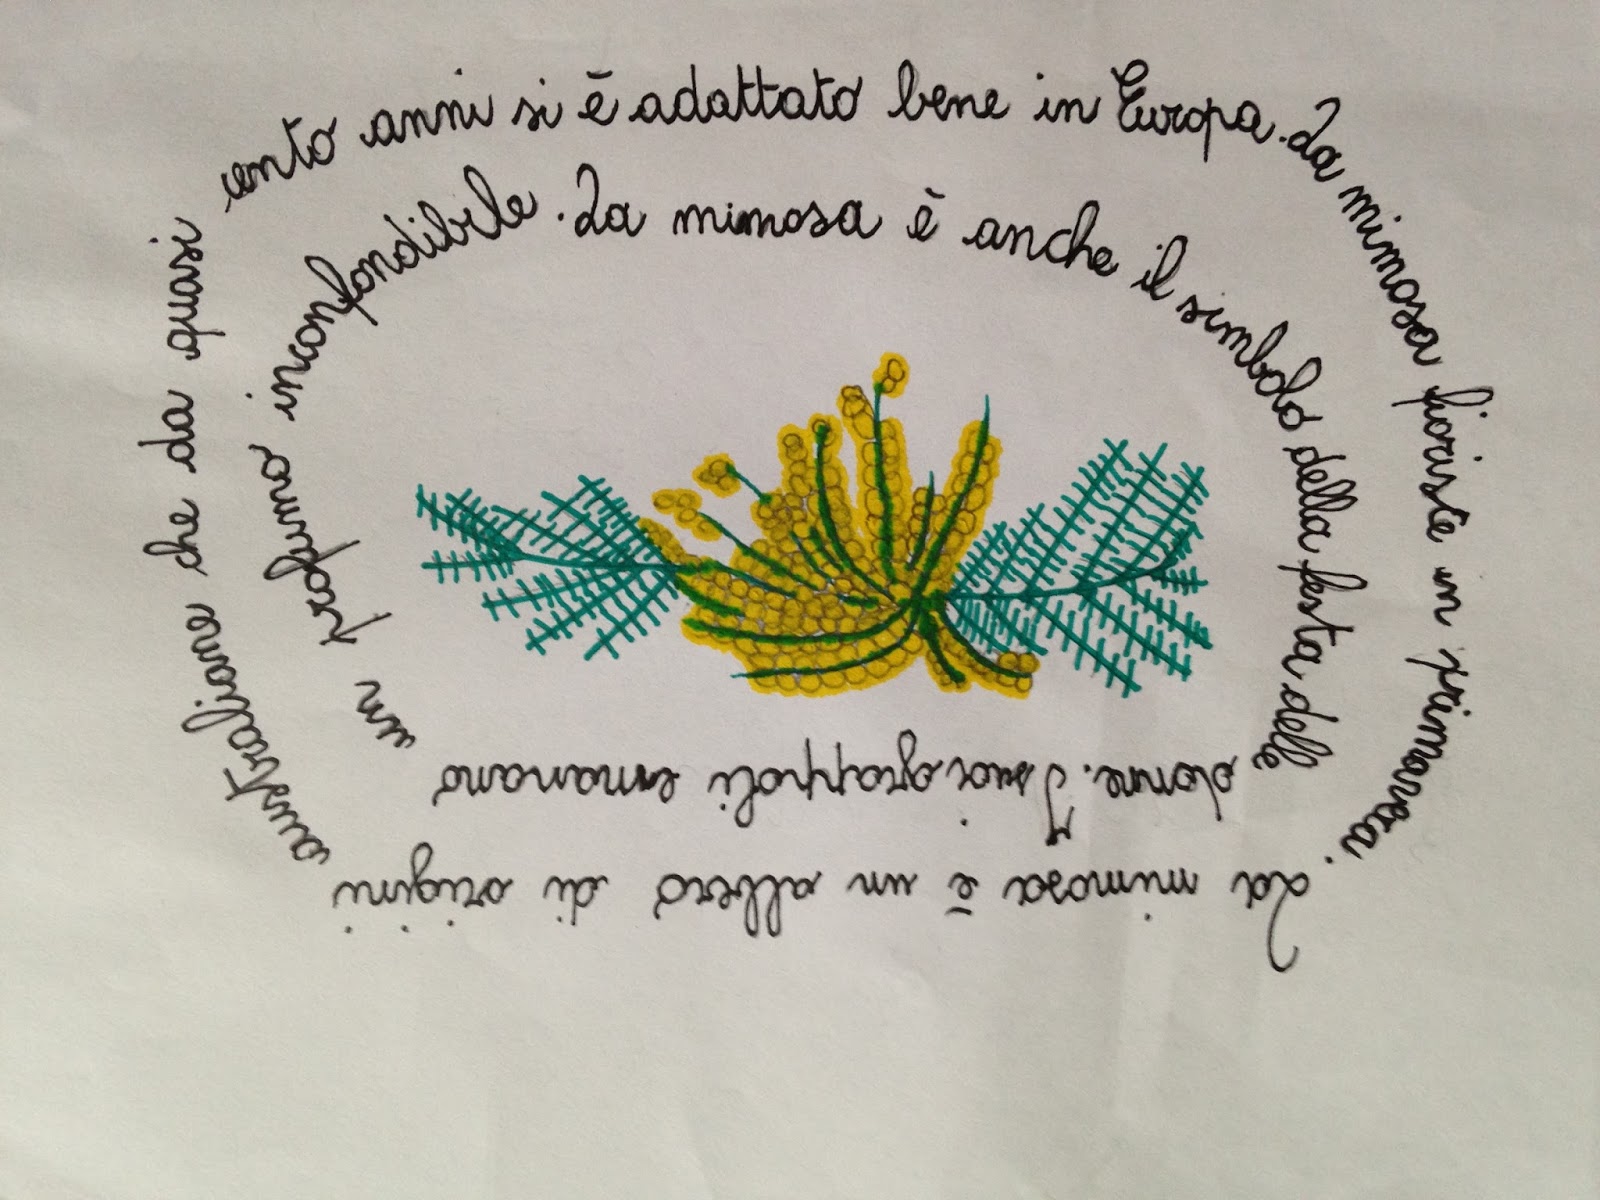 La mimosa è un albero di origini australiane che da quasi cento anni si è adattato bene in Europa. La mimosa fiorisce in primavera.
I suoi grappoli emanano un profumo inconfondibile. La mimosa è anche il simbolo della festa delle donne.